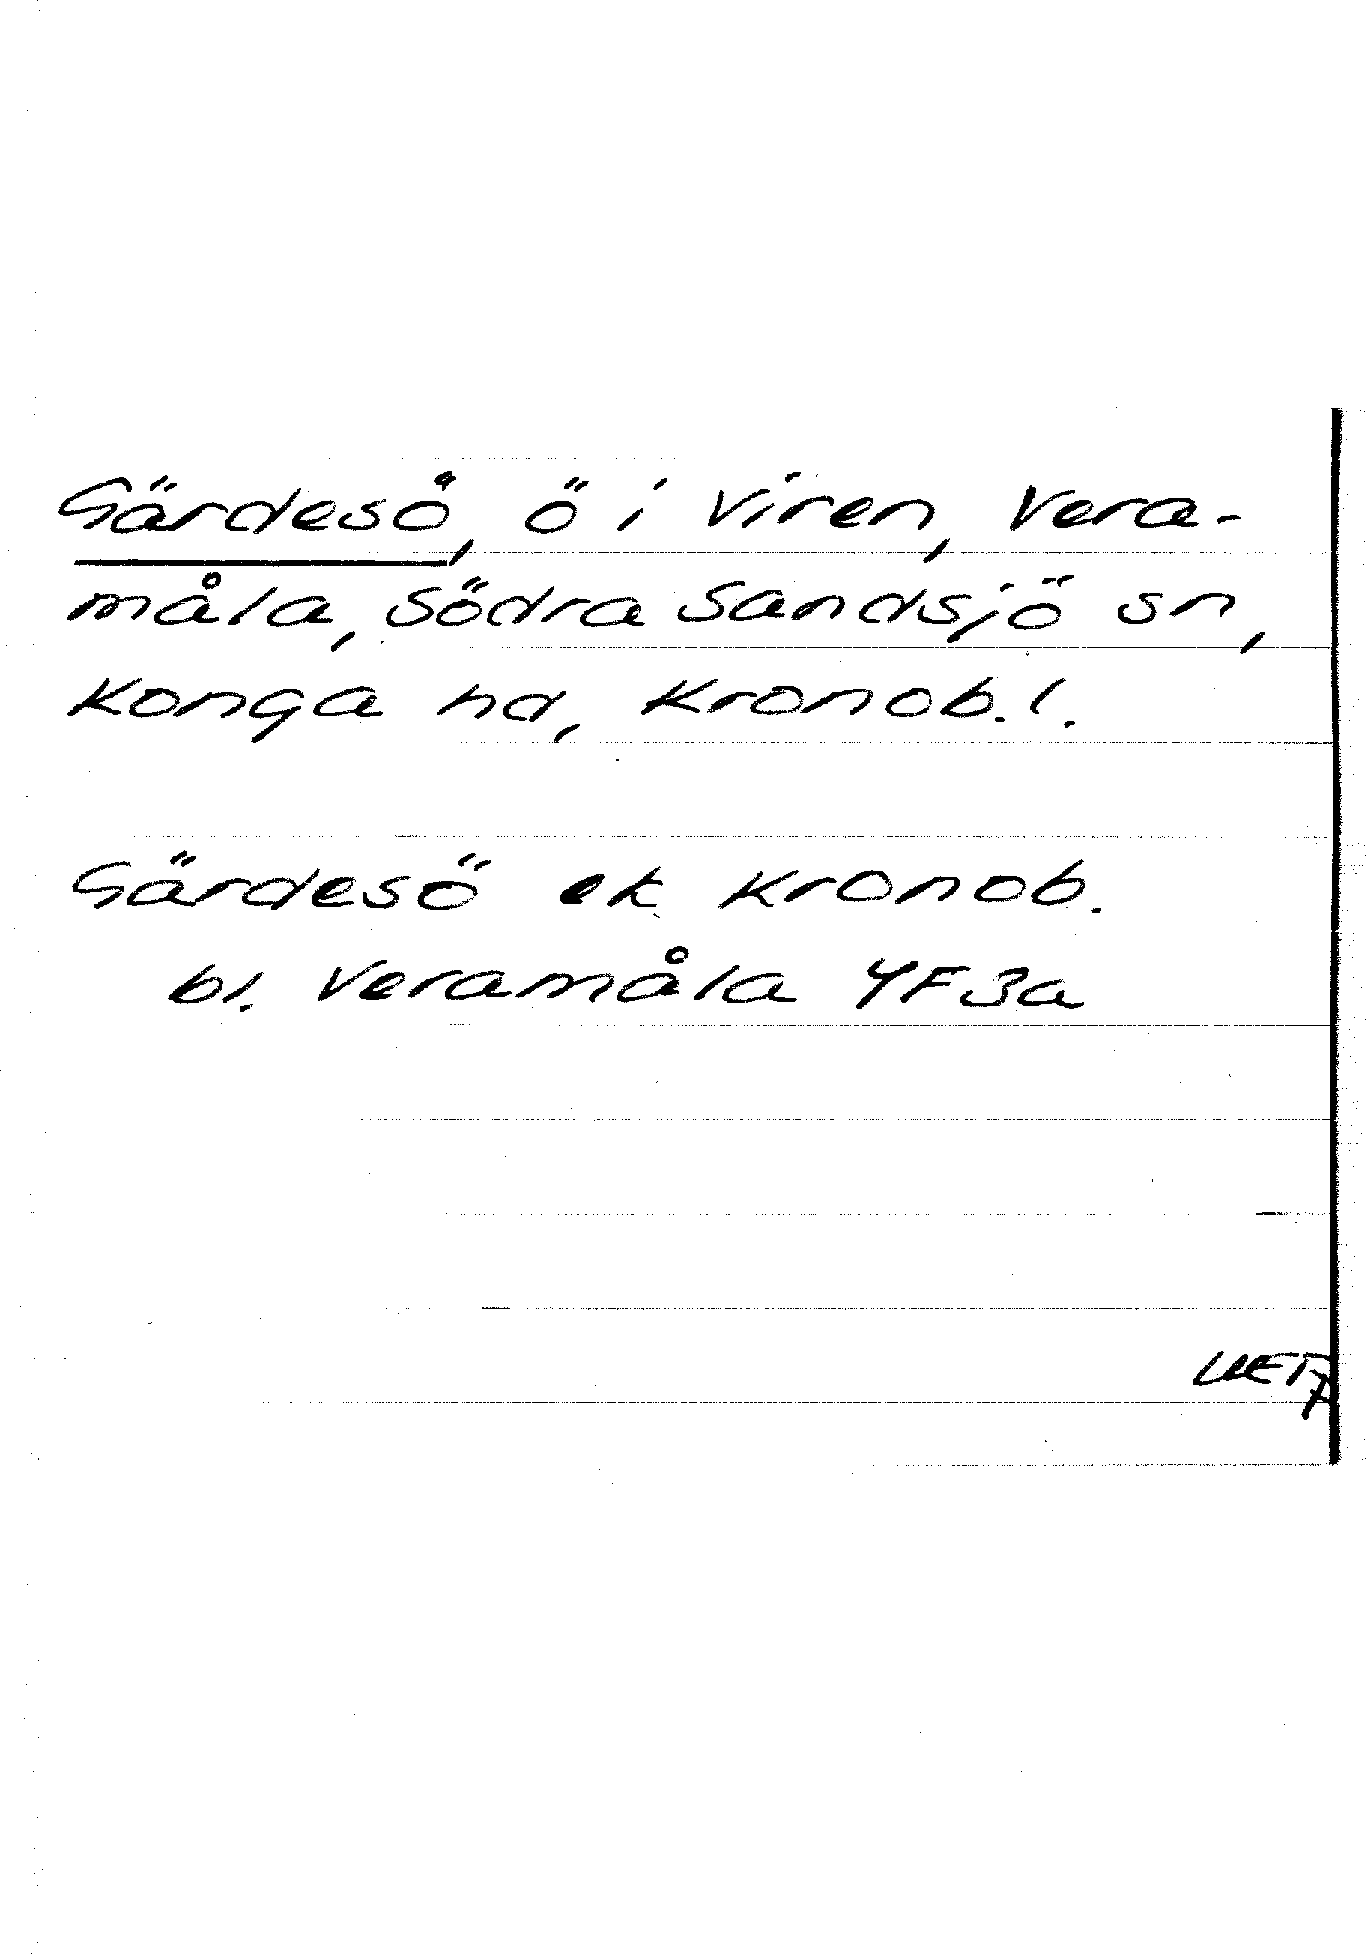 Gärdesö, ö i Viren, Vera-
måla, Södra Sandsjö sn,
Konga hd, Kronob. l.
Gärdesö ek Kronob.
bl. Veramåla 4F3a